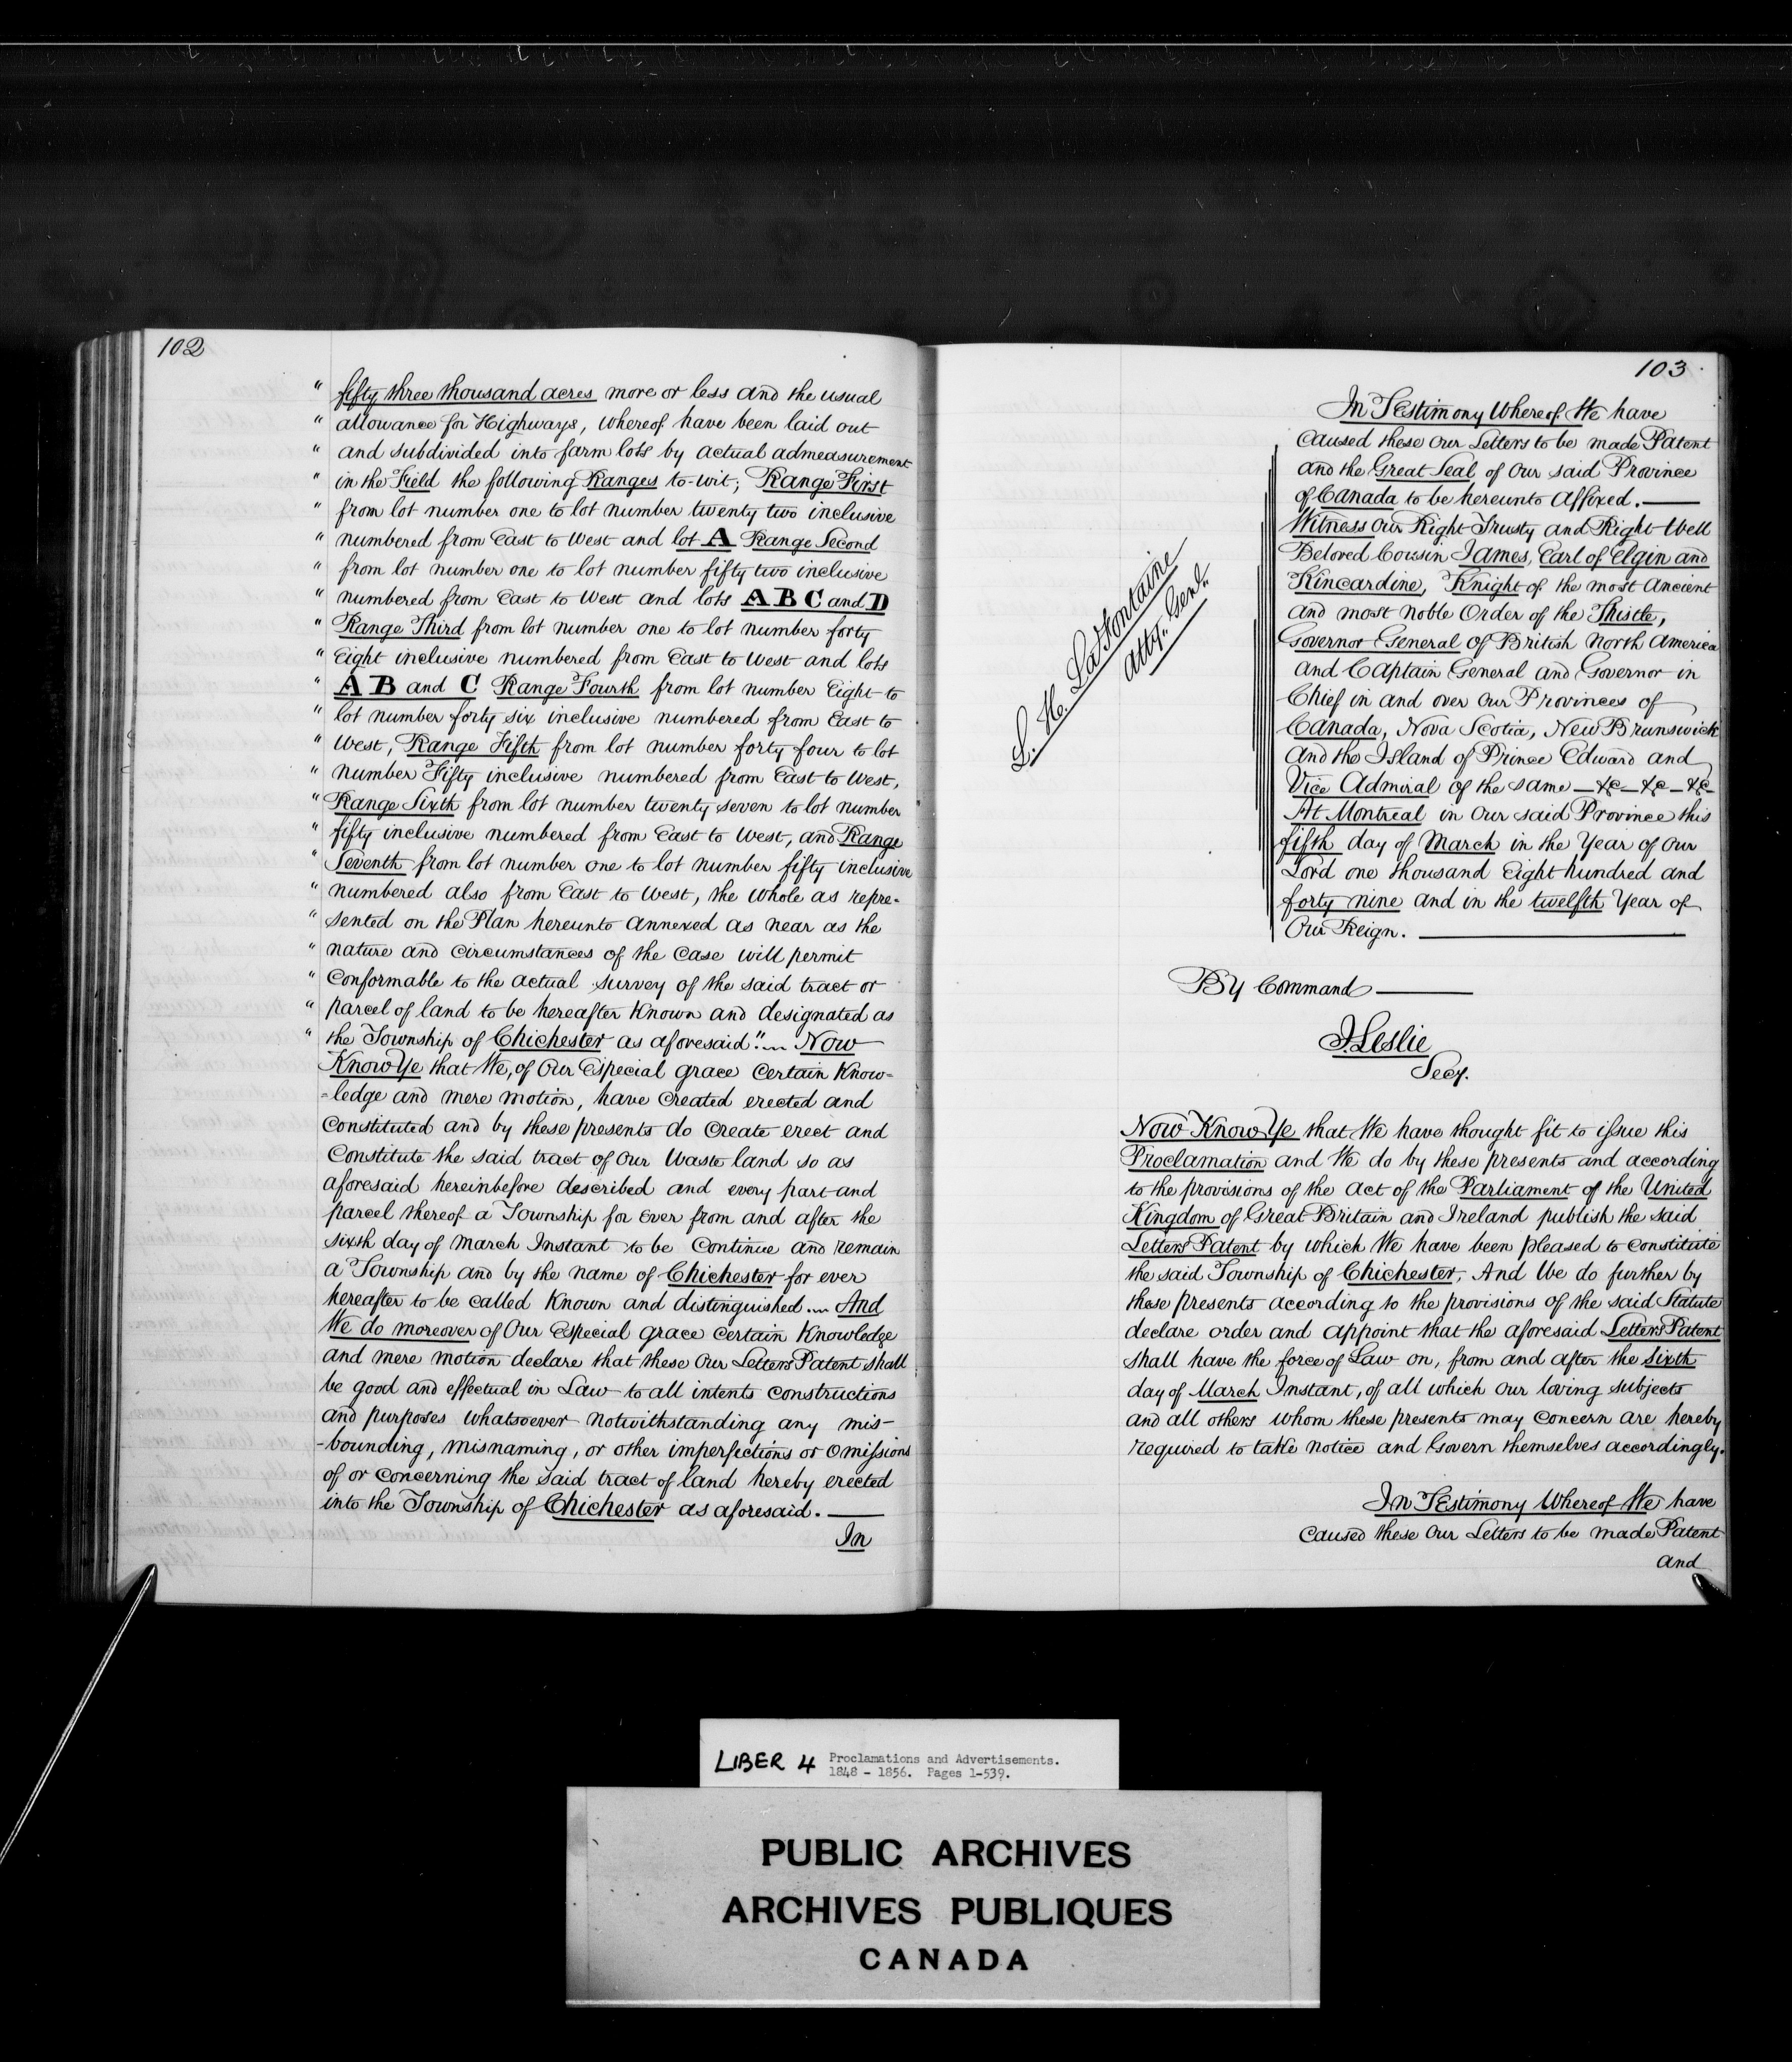 102
" fifty three thousand acres more or less and the usual
" allowance for Highways, whereof have been laid out
" and subdivided into farm lots by actual admeasurement
" in the Field the following Ranges to-wit; Range First
" from lot number one to lot number twenty two inclusive
" numbered from East to West and lot A Range Second
" from lot number one to lot number fifty two inclusive
" numbered from East to West and lots A B C and D
" Range Third from lot number one to lot number forty
" Eight inclusive numbered from East to West and lots
" A B and C Range Fourth from lot number Eight to
" lot number forty six inclusive numbered from East to
" West, Range Fifth from lot number forty four to lot
" number Fifty inclusive numbered from East to West,
" Range Sixth from lot number twenty seven to lot number
" fifty inclusive numbered from East to West, and Range
" Seventh from lot number one to lot number fifty inclusive
" numbered also from East to West, the whole as repre-
" sented on the Plan hereunto annexed as near as the
" nature and circumstances of the Case will permit
" conformable to the actual survey of the said tract or
" parcel of land to be hereafter Known and designated as
" the Township of Chichester as aforesaid".... Now
Know Ye that We, of Our Especial grace Certain Know=
=ledge and mere motion, have Created erected and
Constituted and by these presents do Create erect and
Constitute the said tract of Our Waste land so as
aforesaid hereinbefore described and every part and
parcel thereof a Township for ever from and after the
sixth day of March Instant to be Continue and remain
a Township and by the name of Chichester for ever
hereafter to be called Known and distinguished.... And
We do moreover of Our Especial grace Certain Knowledge
and mere motion declare that these Our Letters Patent shall
be good and effectual in Law to all intents constructions
and purposes whatsoever notwithstanding any mis-
-bounding, misnaming, or other imperfections or omissions
of or concerning the said tract of land hereby erected
into the Township of Chichester as aforesaid.
In
103
In Testimony Whereof We have
Caused these Our Letters to be made Patent
and the Great Seal of Our said Province
of Canada to be hereunto Affixed.
Witness Our Right Trusty and Right Well
Beloved Cousin James, Earl of Elgin and
Kincardine, Knight of the most Ancient
and most Noble Order of the Thistle,
Governor General of British North America
and Captain General and Governor in
Chief in and over Our Provinces of
Canada, Nova Scotia, New Brunswick
and the Island of Prince Edward and
Vice Admiral of the same — &c — &c — &c
At Montreal in Our said Province this
fifth day of March in the Year of Our
Lord one thousand Eight hundred and
forty nine and in the twelfth Year of
Our Reign.
L. H. LaFontaine
Atty. Genl.
By Command
J. Leslie
Secy.
Now Know Ye that We have thought fit to issue this
Proclamation and We do by these presents and according
to the provisions of the Act of the Parliament of the United
Kingdom of Great Britain and Ireland publish the said
Letters Patent by which We have been pleased to Constitute
the said Township of Chichester, And We do further by
these presents according to the provisions of the said Statute
declare order and appoint that the aforesaid Letters Patent
shall have the force of Law on, from and after the Sixth
day of March Instant, of all which Our loving subjects
and all others whom these presents may Concern are hereby
required to take notice and Govern themselves accordingly.
In Testimony Whereof We have
Caused these Our Letters to be made Patent
and
LIBER 4 Proclamations and Advertisements.
1848 - 1856. Pages 1-539.
PUBLIC ARCHIVES
ARCHIVES PUBLIQUES
CANADA